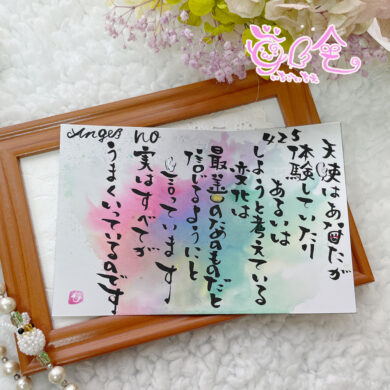 Angel no
425
天使はあなたが
体験していたり
あるいは
しようと考えている
変化は
最善のためのものだと
信じるようにと
言っています
実はすべてが
うまくいっているのです